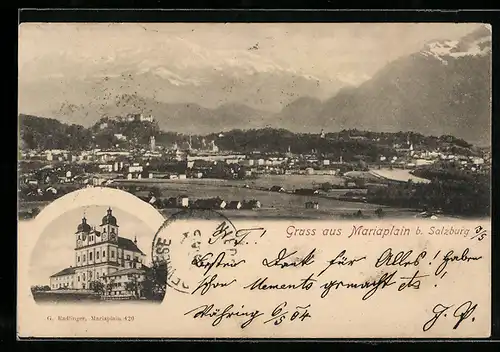 Gruss aus Mariaplein b. Salzburg
besten Dank für Alles! Haben
schon Memento gemacht etc.
Währing 6/5 04
G. Radlinger, Mariaplein. 420